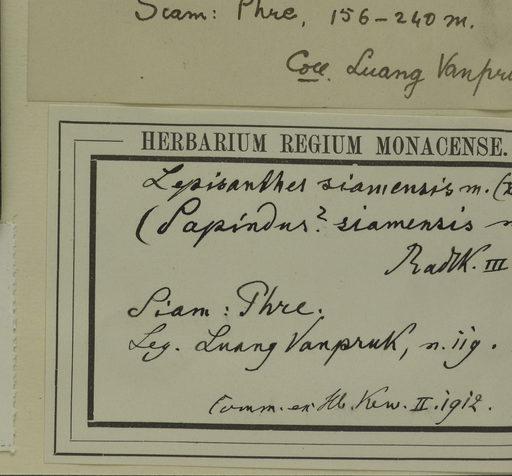 Siam: Phre, 156–240 m.
Coll. Luang Vanpru
HERBARIUM REGIUM MONACENSE.
Lepisanthes siamensis m. (
(Sapindus? siamensis
Radlk. III
Siam: Phre.
Leg. Luang Vanpruk, n. 119.
Comm. ex Hb. Kew. II. 1912.